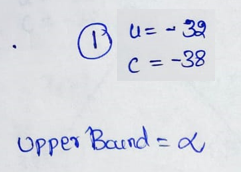 ① u = - 32
c = -38
Upper Bound = α